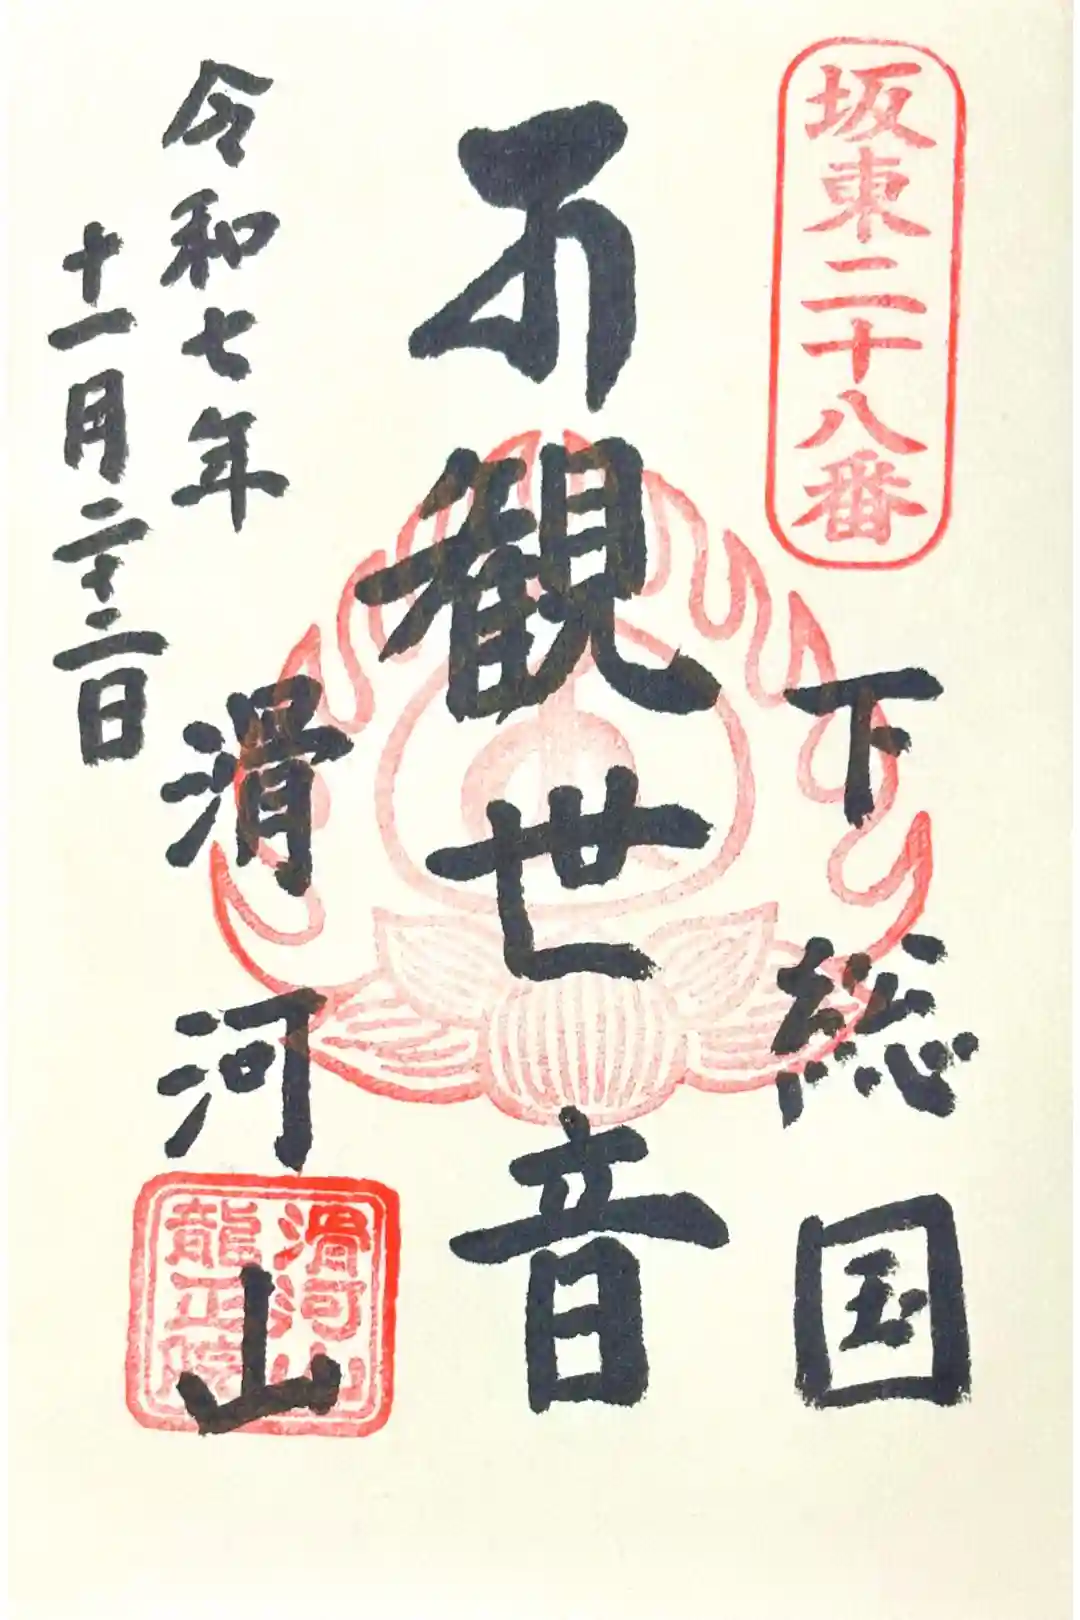 坂東二十八番
下総国
観世音
滑河山
滑河山
龍正院
令和七年
十一月二十二日